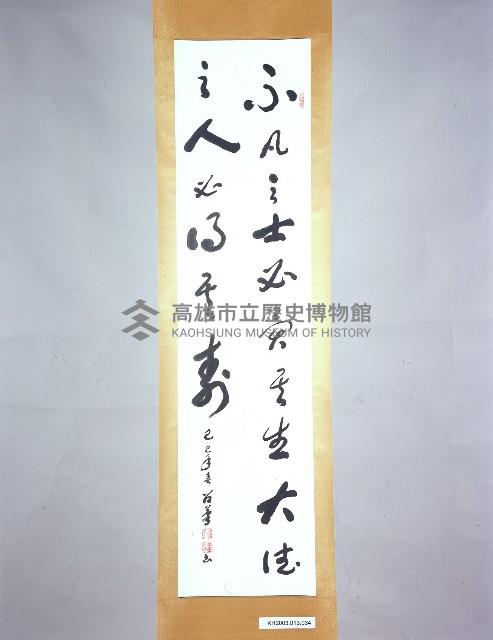 不凡之士必寬其生大德
之人必得其壽
己巳年春
高雄市立歷史博物館
KAOHSIUNG MUSEUM OF HISTORY
KH2003.013.034